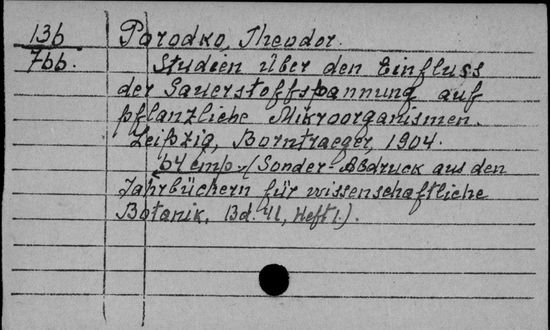 136 Porodko, Theodor.
766. Studien über den Einfluss
der Sauerstoffspannung auf
pflanzliche Mikroorganismen.
Leipzig, Borntraeger, 1904.
64 (Sonder-Abdruck aus den
Jahrbüchern für wissenschaftliche
Botanik, Bd. 41, Heft 1.)